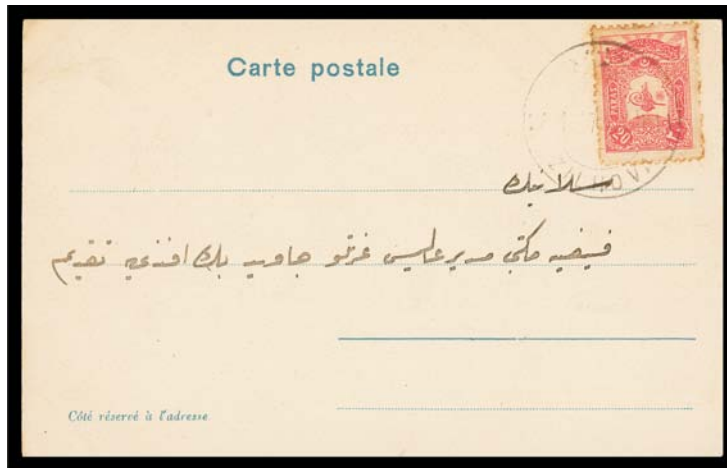 Carte postale
20 PARAS
سلانیك
فیضیه مكتبی مدیر عالیسی عزتلو جاوید بك افندی یه تقدیم
Côté réservé à l'adresse